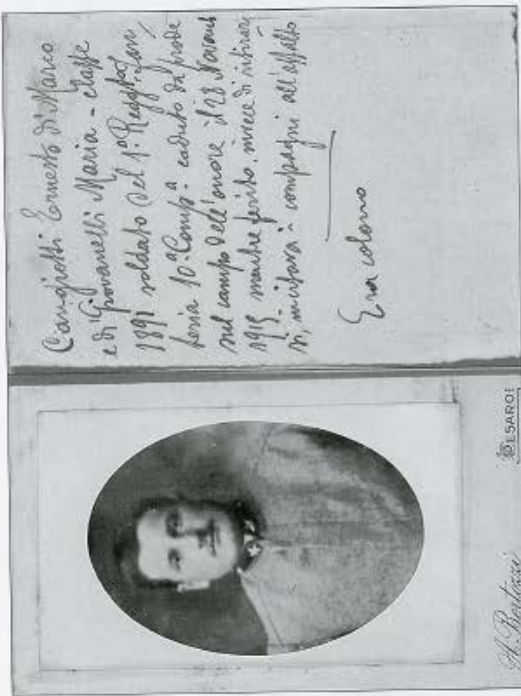 Cangiotti Ernesto di Marco
e di Giovanelli Maria - classe
1891 soldato del 1º Regg. Fan
teria 10ª Compª - caduto da prode
sul campo dell'onore il 28 Novemb
1915 mentre ferito, invece di ritirar
si, incitava i compagni all'assalto
Era colono
A. Bertozzi
PESARO